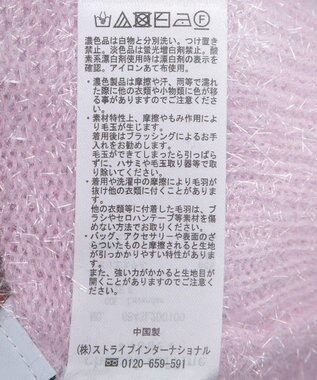 濃色品は白物と分別洗い。つけ置き
禁止。淡色品は蛍光増白剤禁止。酸
素系漂白剤使用時は漂白剤の表示
を確認。アイロンあて布使用。
・濃色製品は摩擦や汗、雨等で濡れ
た際に他の衣類や小物類に色が移
る事がありますのでご注意くださ
い。
・素材特性上、摩擦やもみ作用により
毛玉が生じます。
着用後はブラッシングによるお手
入れをお勧めします。
毛玉ができてしまったら引っぱら
ずに、ハサミや毛玉取り器等で取り
除いてください。
・着用や洗濯中の摩擦により毛羽が
抜け他の衣類に付くことがありま
す。
他の衣類等に付着した毛羽は、ブ
ラシやセロハンテープ等素材を傷
めない方法でお取りください。
・バッグ、アクセサリーや表面のざ
らついたものと摩擦されると生地
が引っかかりやすいのでご注意く
ださい。
また、強い力がかかると生地目が
開くことがありますのでご注意く
ださい。
中国製
(株)ストライプインターナショナル
0120-659-591